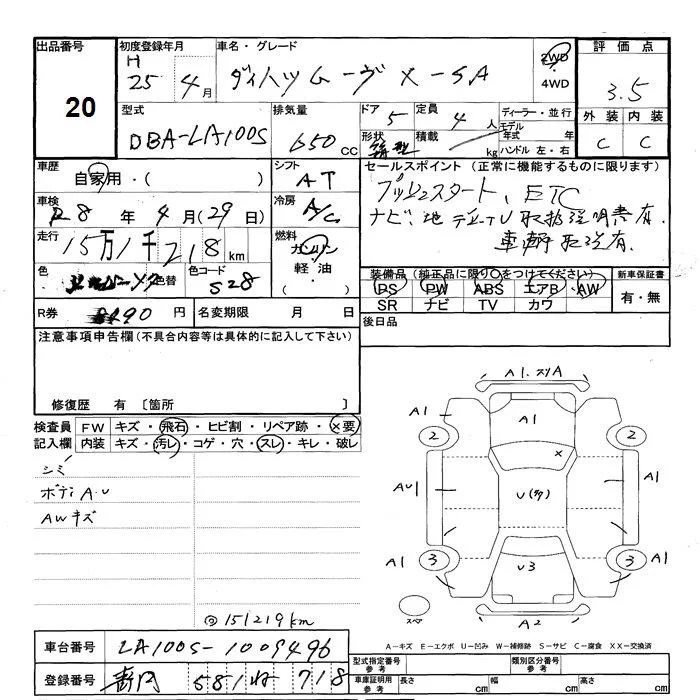 出品番号 初度登録年月 車名・グレード 評価点
20 H 25年 4月 ダイハツムーヴ X-SA 2WD 4WD 3.5
型式 排気量 ドア 定員 ディーラー・並行 外装 内装
DBA-LA100S 650cc 5 4人 モデル年式 年 C C
形状 積載 kg ハンドル 左・右
車歴 自家用・( ) シフト AT セールスポイント (正常に機能するものに限ります)
プッシュスタート、ETC
車検 R8年 4月(29日) 冷房 A/C ナビ、地デジTV取扱説明書有、
走行 15万1千218km 燃料 ガソリン 車輌取説有、
軽油・( )
色 色替 色コード S28
装備品 (純正品に限り○をつけてください) 新車保証書
PS PW ABS エアB AW 有・無
SR ナビ TV カワ
R券 円 名変期限 月 日 後日品
注意事項申告欄(不具合内容等は具体的に記入して下さい)
修復歴 有 〔箇所
検査員記入欄 FW キズ・飛石・ヒビ割・リペア跡・×要
内装 キズ・汚レ・コゲ・穴・スレ・キレ・破レ
シミ
ボディA.U
AWキズ
@151219km
A1.スリA
A1 A1 A1
2 2
×
AU1 U(多) A1
A1 3 U3 3 A1
スペア A2
A-キズ E-エクボ U-凹み W-補修跡 S-サビ C-腐食 XX-交換済
車台番号 LA100S-1009496
登録番号 581 718
型式指定番号 参考 類別区分番号 参考
車庫証明用 参考 長さ cm 幅 cm 高さ cm